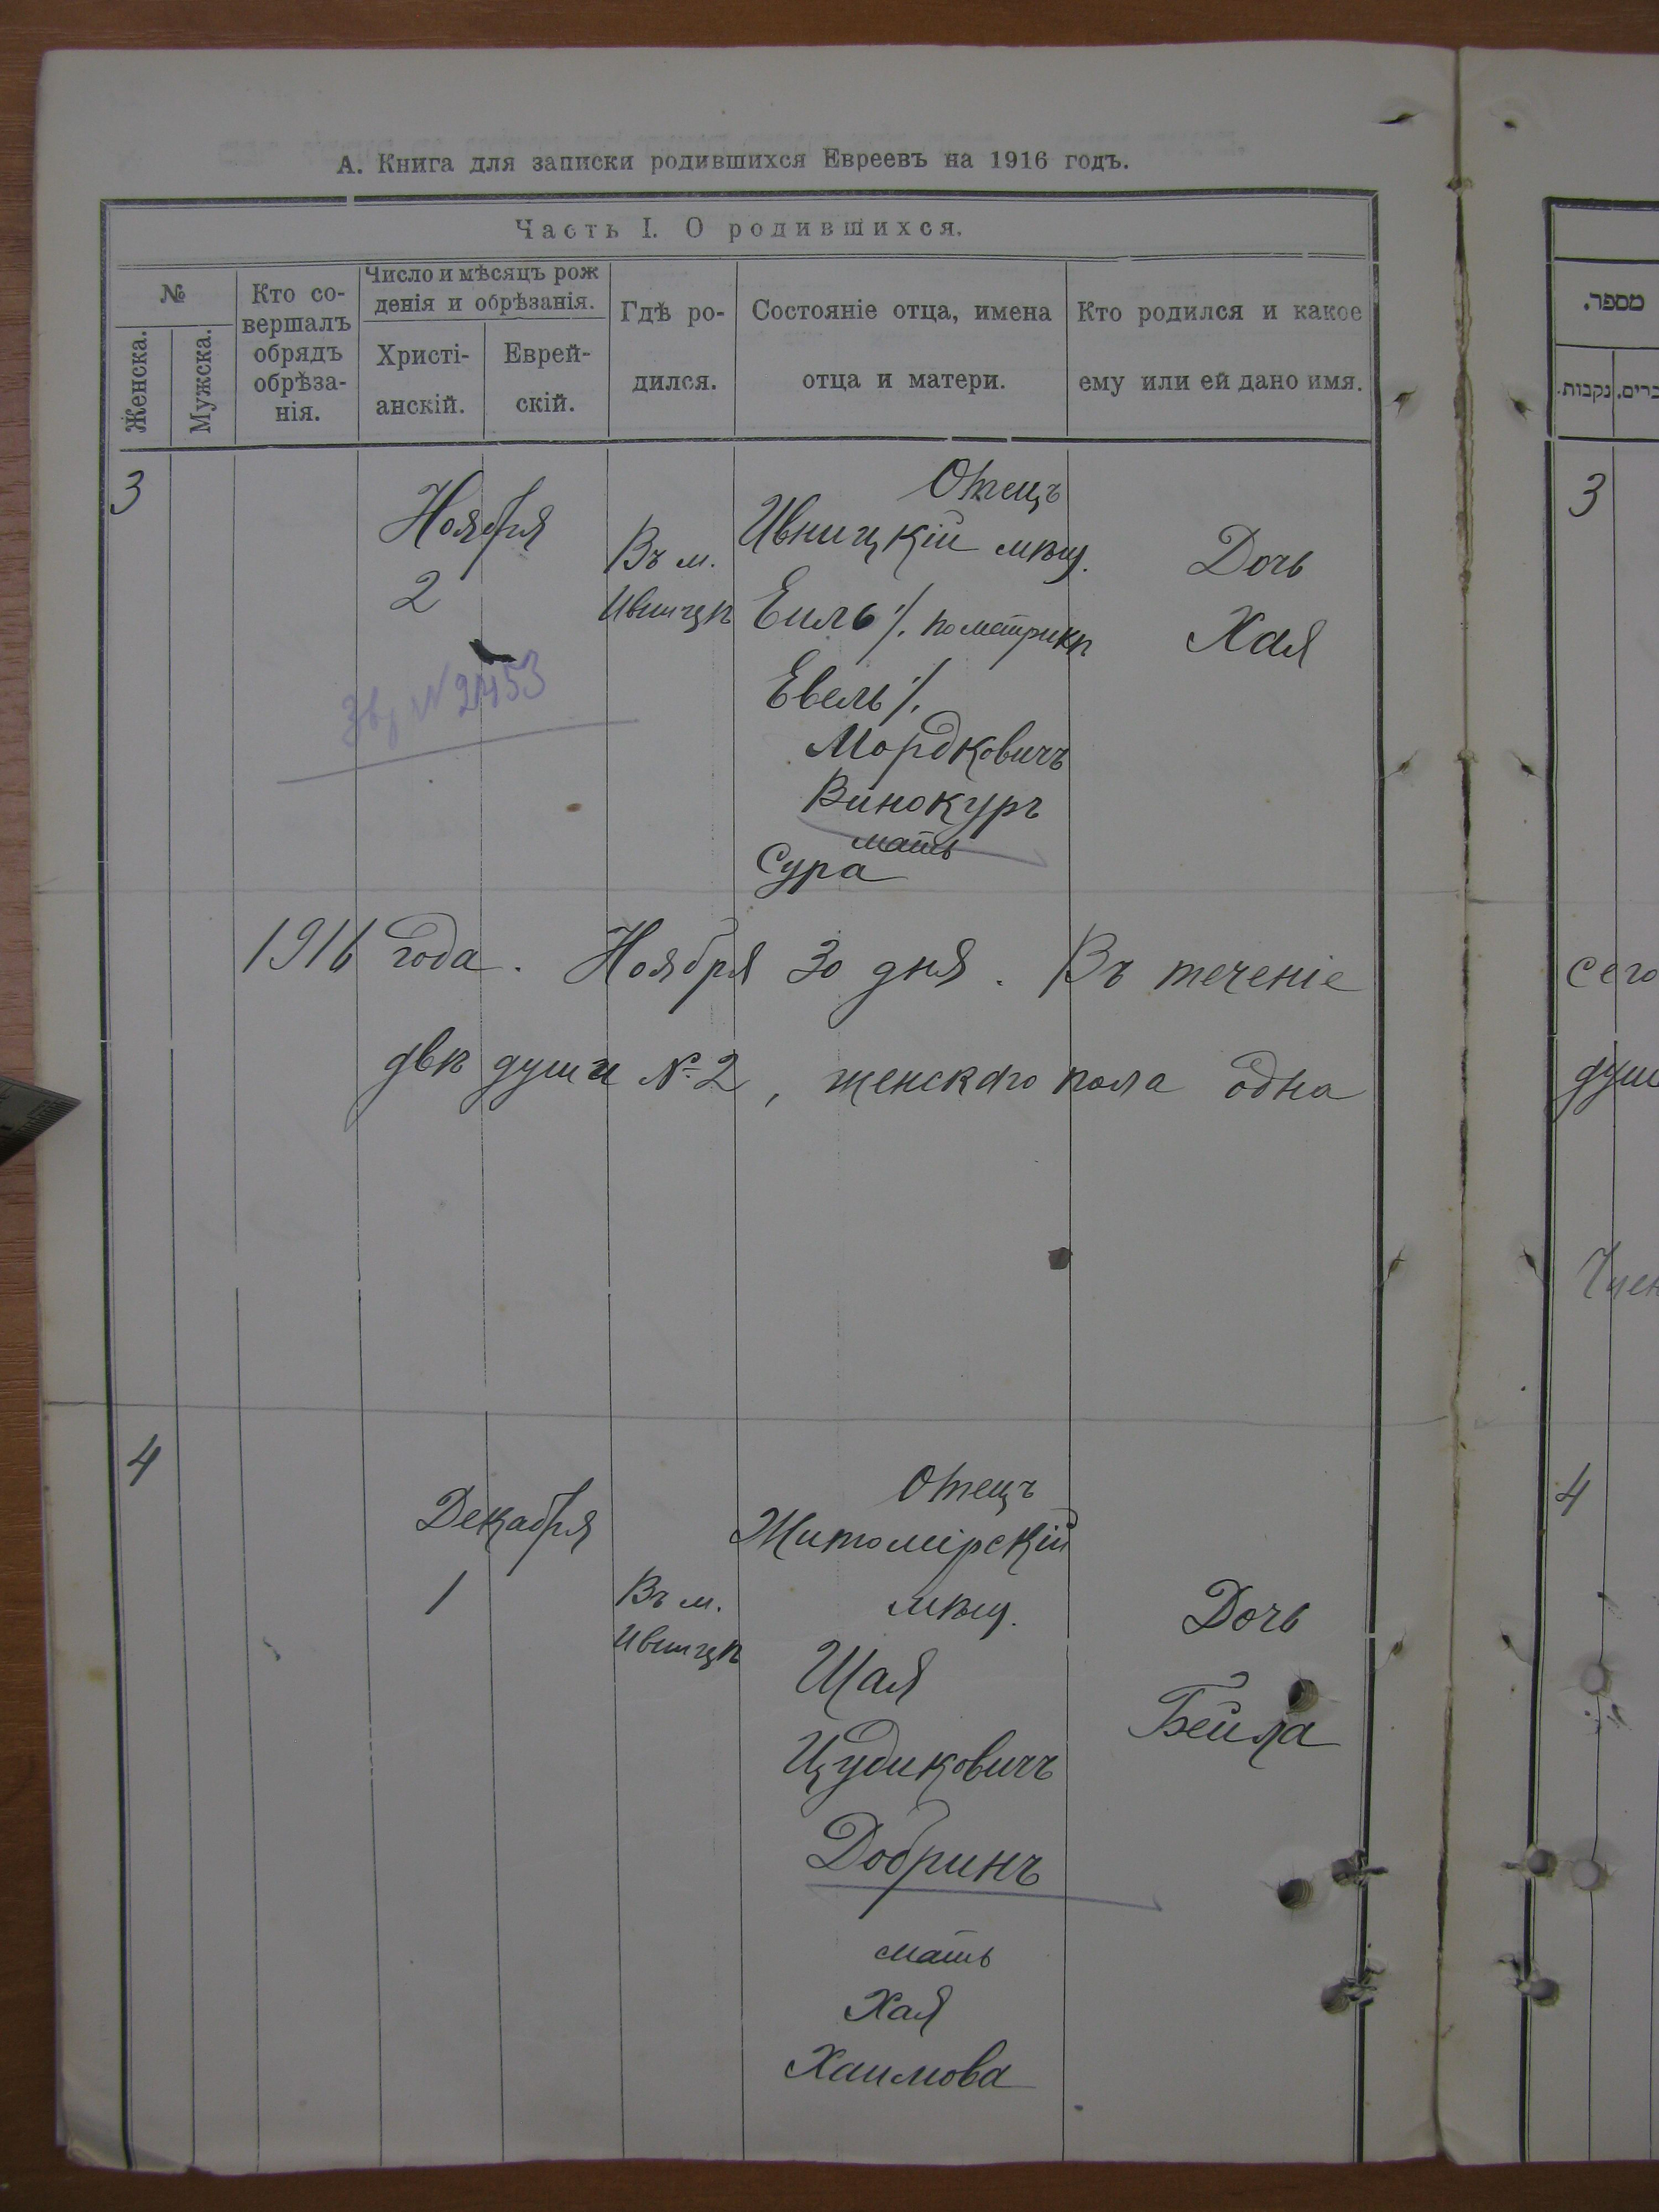 А. Книга для записки родившихся Евреевъ на 1916 годъ.
Часть I. О родившихся.
№
Женска.
Мужска.
Кто со-
вершалъ
обрядъ
обрѣза-
нія.
Число и мѣсяцъ рож
денія и обрѣзанія.
Христі-
анскій.
Еврей-
скій.
Гдѣ ро-
дился.
Состояніе отца, имена
отца и матери.
Кто родился и какое
ему или ей дано имя.
3
Ноября
2
Въ м.
Ивницѣ
Отецъ
Ивницкій мѣщ.
Еиль /. по метрикѣ
Евель /.
Мордковичъ
Винокуръ
мать
Сура
Дочь
Хая
№ 2453
1916 года. Ноября 30 дня. Въ теченіе
двѣ души № 2, женскаго пола одна
4
Декабря
1
Въ м.
Ивницѣ
Отецъ
Житомірскій
мѣщ.
Шая
Цудиковичъ
Добринъ
мать
Хая
Хаимова
Дочь
Бейла
מספר.
נקבות.
3
сего
4